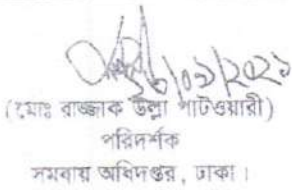 ২৬/০১/২০২১
(মোঃ রাজ্জাক উল্লা পাটওয়ারী)
পরিদর্শক
সমবায় অধিদপ্তর, ঢাকা।